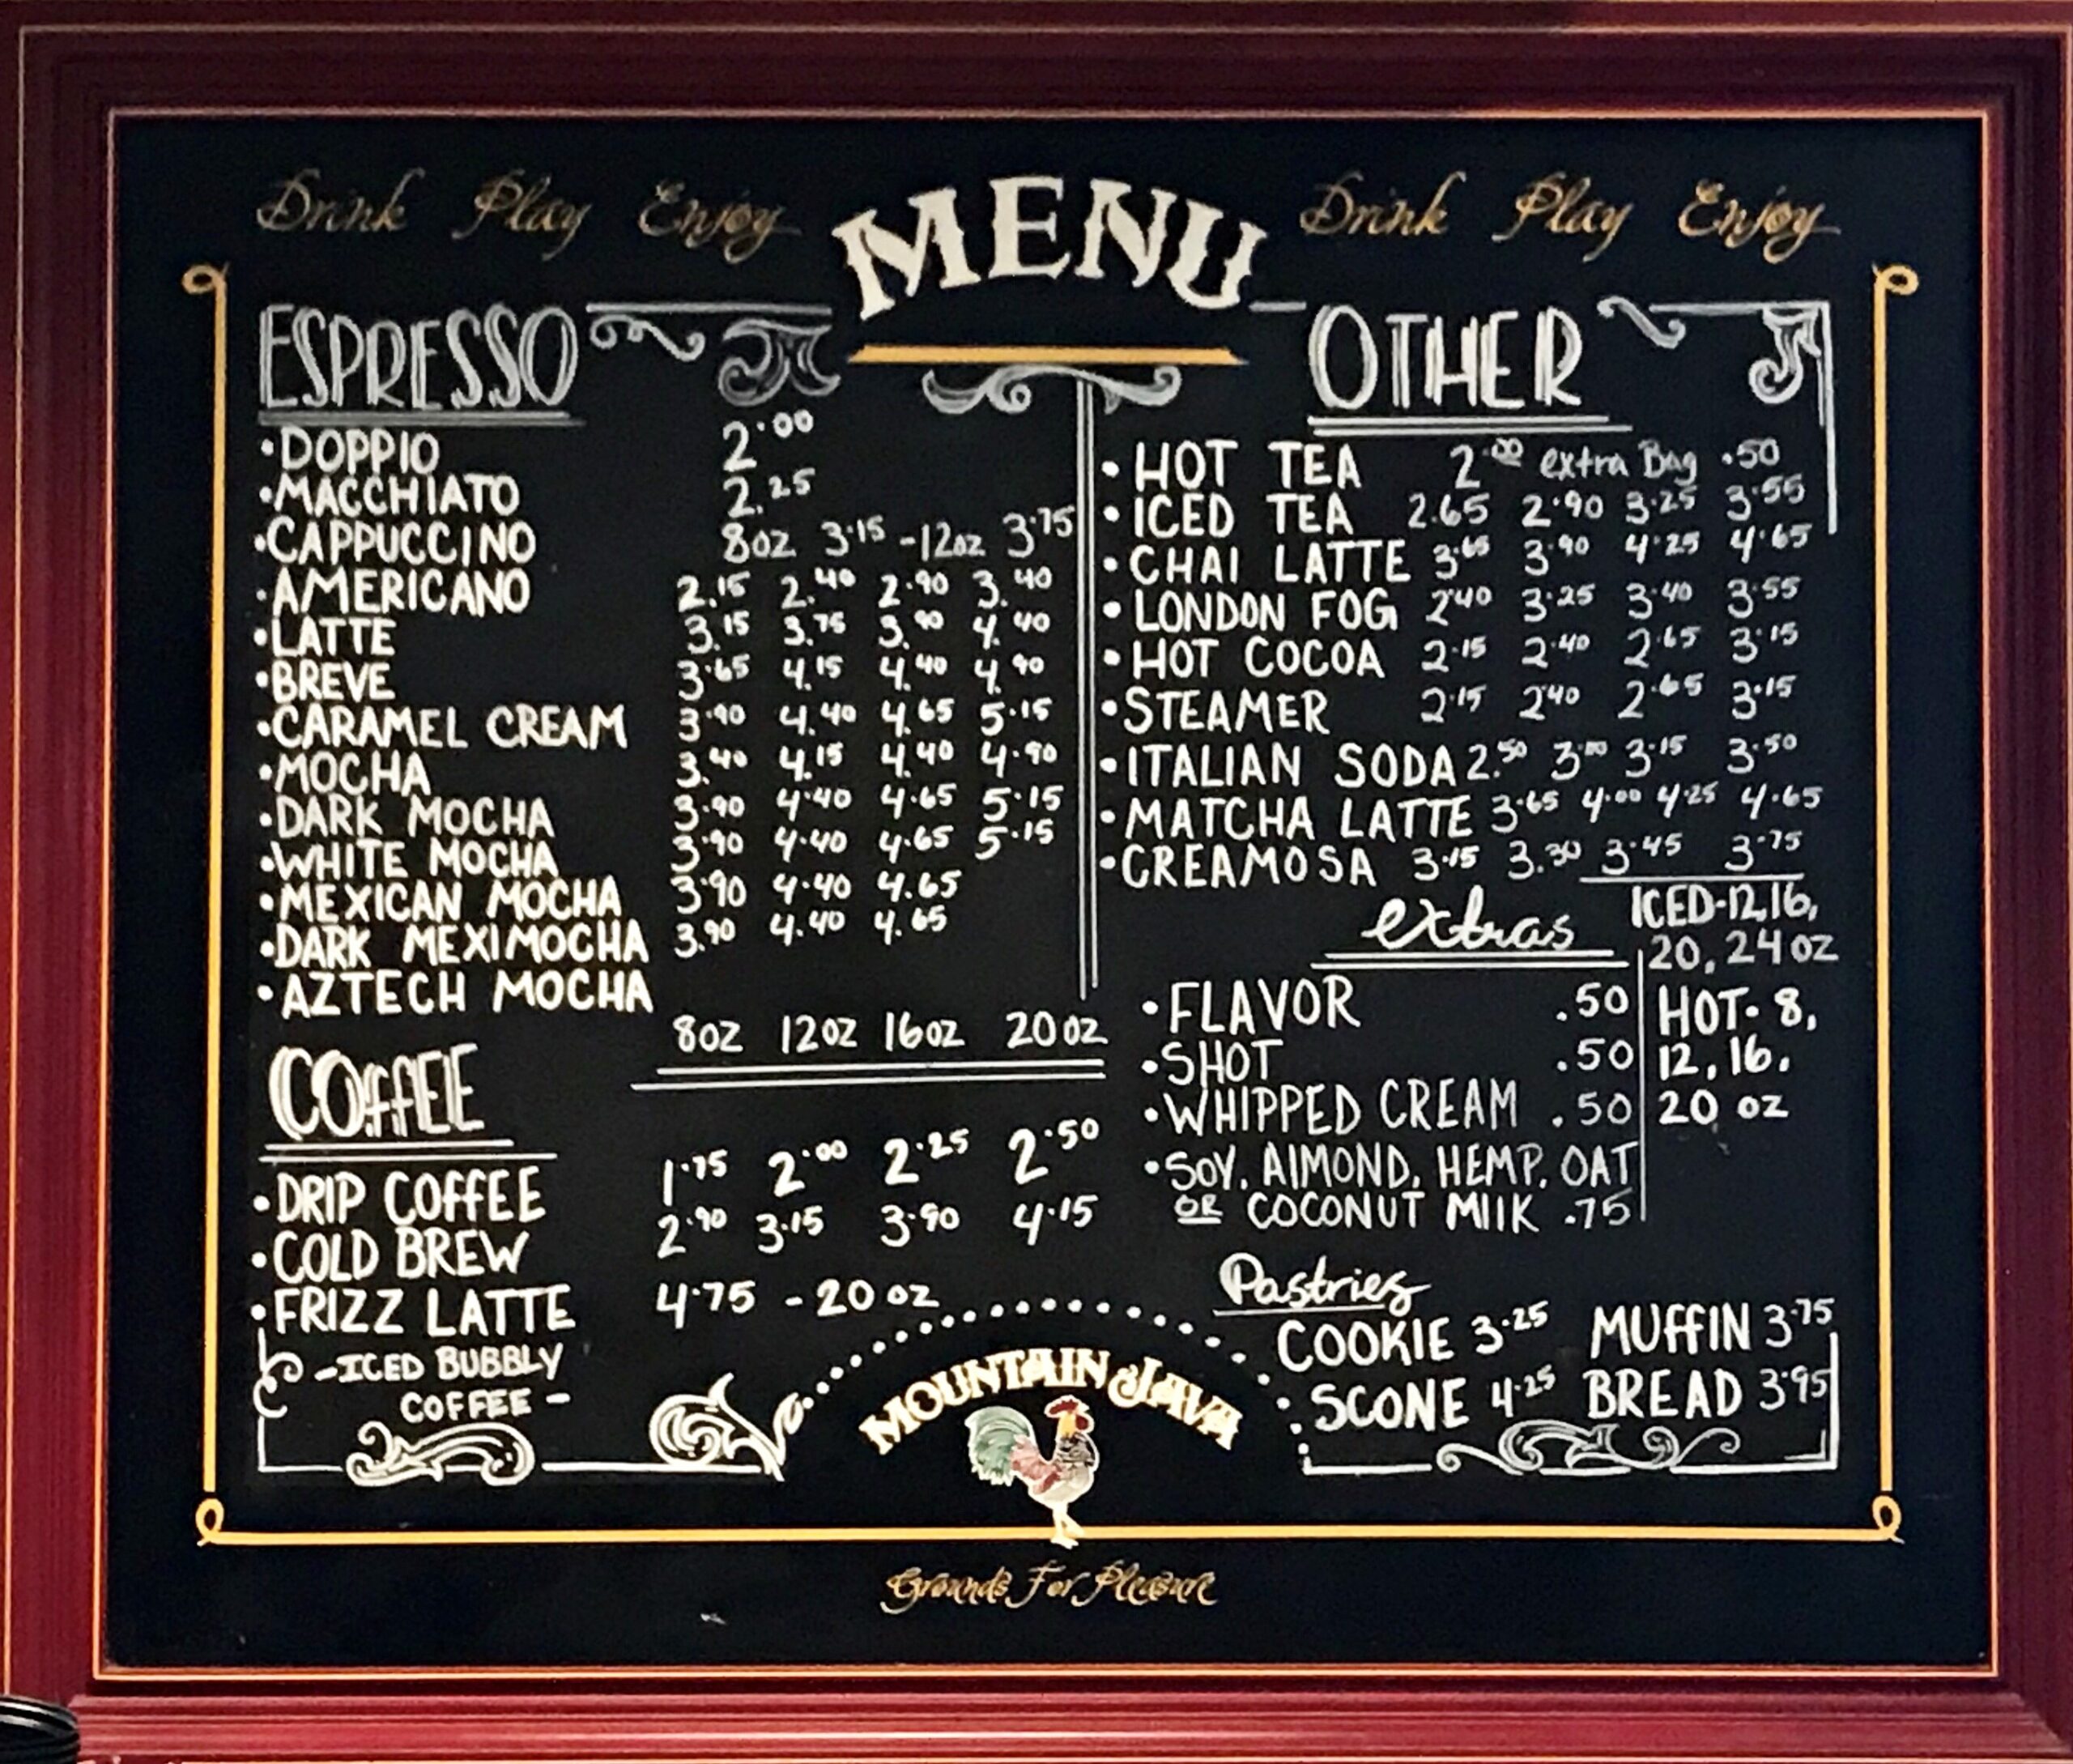 Drink Play Enjoy
MENU
Drink Play Enjoy
ESPRESSO
•DOPPIO 2.00
•MACCHIATO 2.25
•CAPPUCCINO 8oz 3.15 -12oz 3.75
•AMERICANO 2.15 2.40 2.90 3.40
•LATTE 3.15 3.75 3.90 4.40
•BREVE 3.65 4.15 4.40 4.90
•CARAMEL CREAM 3.90 4.40 4.65 5.15
•MOCHA 3.40 4.15 4.40 4.90
•DARK MOCHA 3.90 4.40 4.65 5.15
•WHITE MOCHA 3.90 4.40 4.65 5.15
•MEXICAN MOCHA 3.90 4.40 4.65
•DARK MEXIMOCHA 3.90 4.40 4.65
•AZTECH MOCHA
8oz 12oz 16oz 20oz
COffEE
•DRIP COffEE 1.75 2.00 2.25 2.50
•COLD BREW 2.90 3.15 3.90 4.15
•FRIZZ LATTE 4.75 - 20 oz
-ICED BUBBLY
COFFEE -
OTHER
•HOT TEA 2.00 extra Bag .50
•ICED TEA 2.65 2.90 3.25 3.55
•CHAI LATTE 3.65 3.90 4.25 4.65
•LONDON FOG 2.40 3.25 3.40 3.55
•HOT COCOA 2.15 2.40 2.65 3.15
•STEAMER 2.15 2.40 2.65 3.15
•ITALIAN SODA 2.50 3.00 3.15 3.50
•MATCHA LATTE 3.65 4.00 4.25 4.65
•CREAMOSA 3.15 3.30 3.45 3.75
ICED-12,16,
20, 24 oz
HOT- 8,
12, 16,
20 oz
extras
•FLAVOR .50
•SHOT .50
•WHIPPED CREAM .50
•SOY, AlMOND, HEMP, OAT
OR COCONUT MIlK .75
Pastries
COOKIE 3.25 MUffIN 3.75
SCONE 4.25 BREAD 3.95
MOUNTAIN JAVA
Grounds For Pleasure